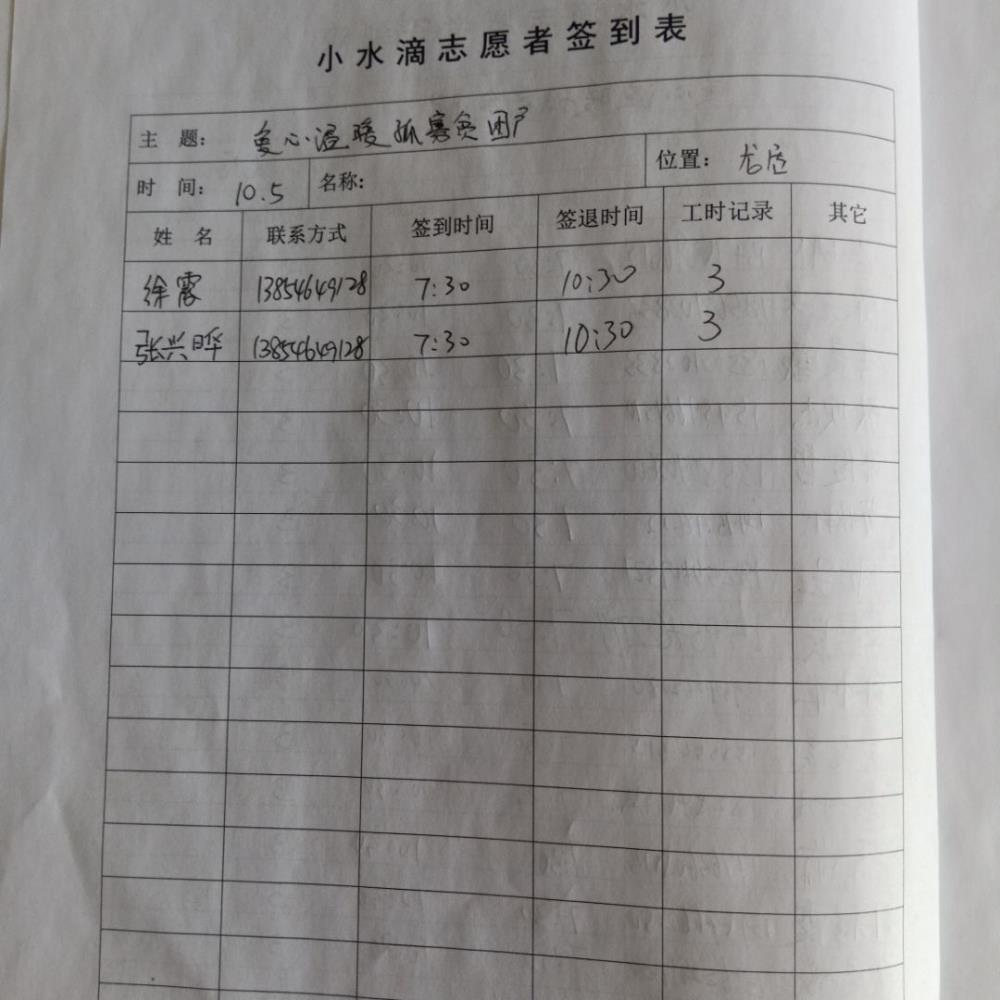 小水滴志愿者签到表
主 题： 爱心温暖孤寡贫困户
时 间： 10.5 名称： 位置：
姓 名 联系方式 签到时间 签退时间 工时记录 其它
徐霞 13854649128 7:30 10:30 3
张兴晔 13854649128 7:30 10:30 3